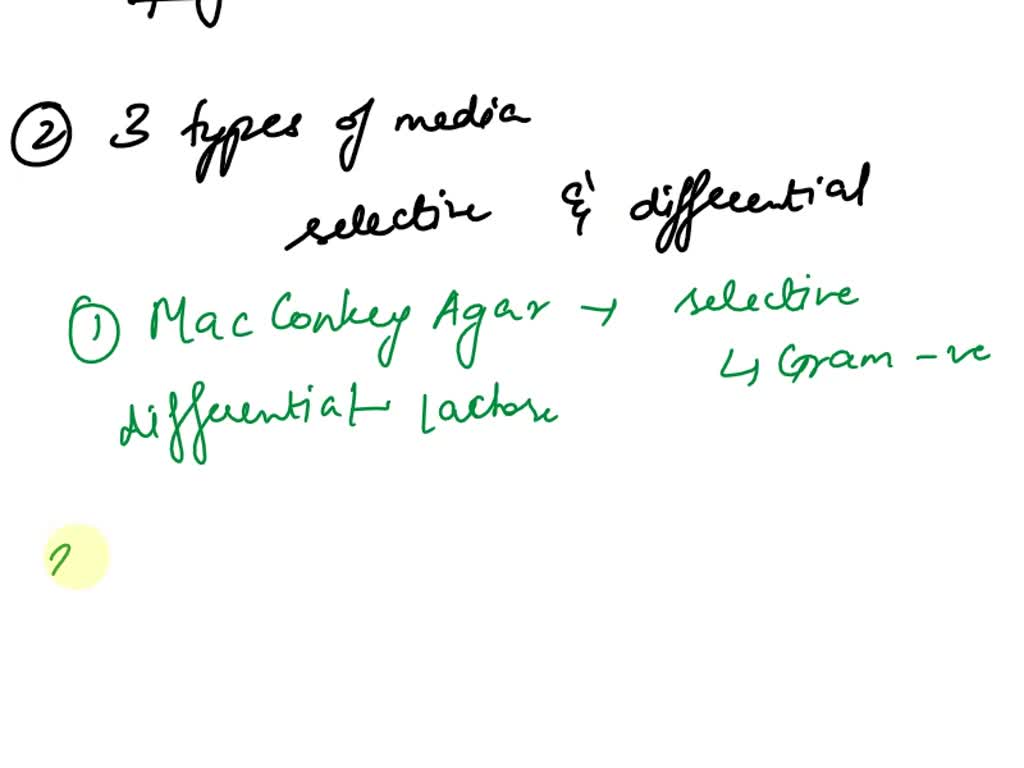 ② 3 types of media
selective & differential
① Mac Conkey Agar → selective
↳ Gram -ve
differential lactose
2